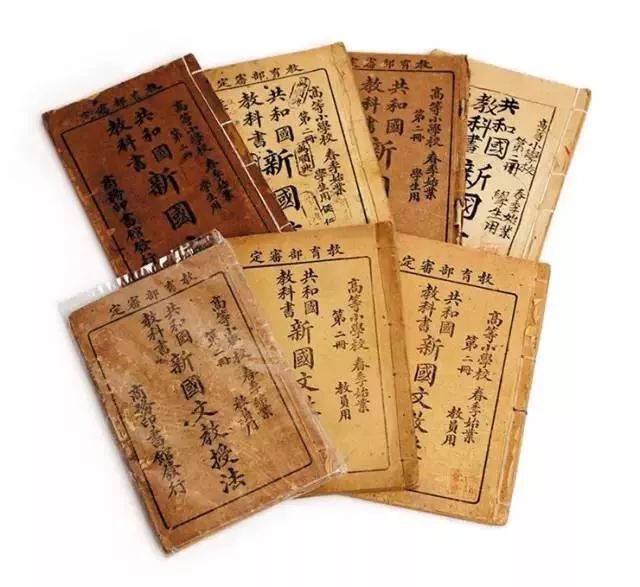 教育部審定
高等小學校 春季始業
第二冊 學生用
共和國
教科書
新國文
商務印書館發行
教育部審定
高等小學校 春季始業
第二冊 學生用
共和國
教科書
新國
教育部審定
高等小學校 春季始業
第二冊 學生用
共和國
教科書
新國
高等小學校 春季始業
第二冊 學生用
共和國
教科書
新國
教育部審定
高等小學校 春季始業
第二冊 教員用
共和國
教科書
新國文教授法
商務印書館發行
教育部審定
高等小學校 春季始業
第二冊 教員用
共和國
教科書
新國文教
教育部審定
高等小學校 春季始業
第二冊 教員用
共和國
教科書
新國文教授